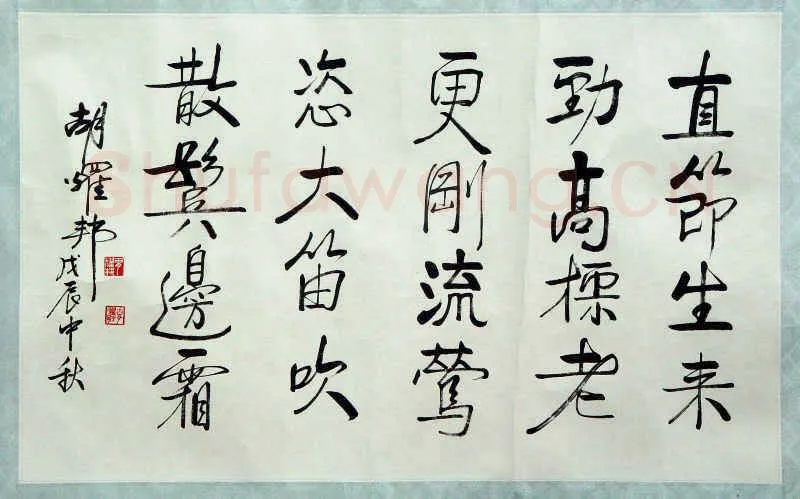 直節生来
勁高標老
更剛流莺
恣大笛吹
散鬓邊霜
胡耀邦
戊辰中秋
shufawang.CN